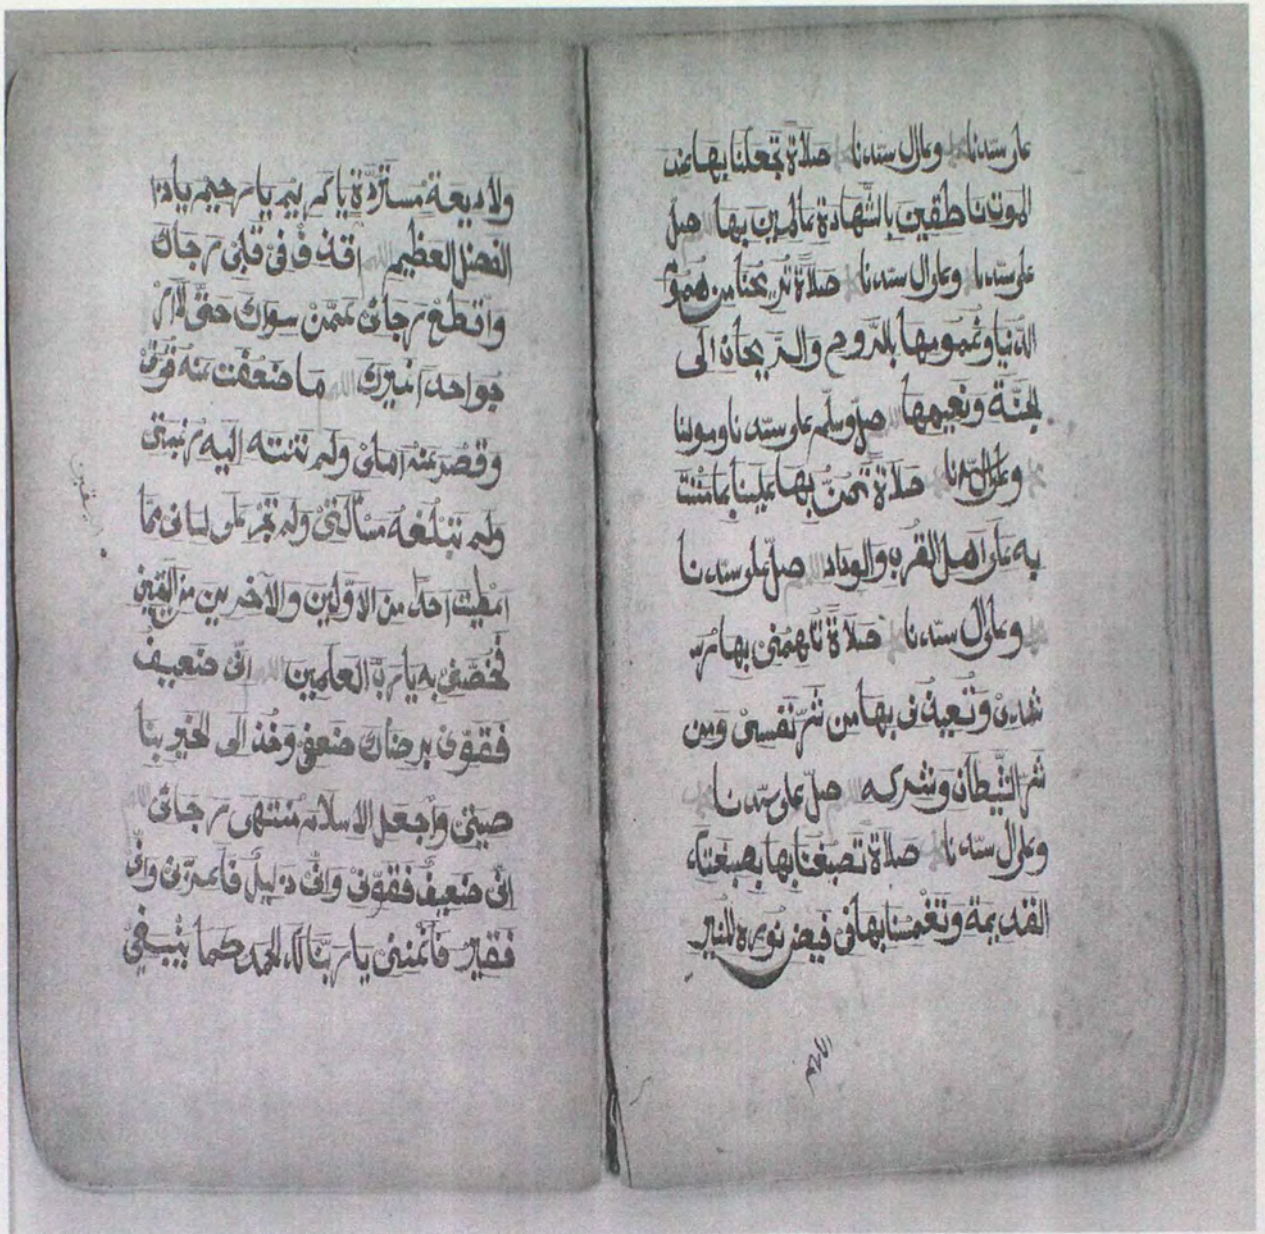 على سيدنا محمد وعلى ال سيدنا محمد صلاة تجعلنا بها عند
الموت ناطقين بالشهادة عالمين بها اللهم صل
على سيدنا محمد وعلى ال سيدنا محمد صلاة تريحنا من هموم
الدنيا وغمومها بالروح والريحان الى
الجنة ونعيمها اللهم صل وسلم على سيدنا ومولنا
محمد وعلى ال سيدنا محمد صلاة تمن بها علينا بما مننت
به على اهل القرب والوداد اللهم صل على سيدنا
محمد وعلى ال سيدنا محمد صلاة تلهمنى بها رس
شدى وتعيذنى بها من شر نفسى ومن
شر الشيطان وشركه اللهم صل على سيدنا محمد
وعلى ال سيدنا محمد صلاة تصبغنا بها بصبغتك
القديمة وتغمسنا بها فى فيض نوره المنير
اللهم
ولا وديعة مستردة يا كريم يا رحيم يا ذا
الفضل العظيم اللهم اقذف فى قلبى رجاك
واقطع رجائى عمن سواك حتى لا ار
جوا احدا غيرك اللهم ما ضعفت عنه قوتى
وقصر عنه املى ولم تنته اليه رغبتى
ولم تبلغه مسألتى ولم تجر على لسانى مما
اعطيت احدا من الاولين والاخرين من اليقين
فخصنى به يا رب العالمين اللهم انى ضعيف
فقونى برضاك ضعفى وخذ الى الخير بنا
صيتى واجعل الاسلام منتهى رجائى
انى ضعيف فقونى وانى ذليل فاعزنى وانى
فقير فأغننى يا ربنا لك الحمد كما ينبغى
اليقين